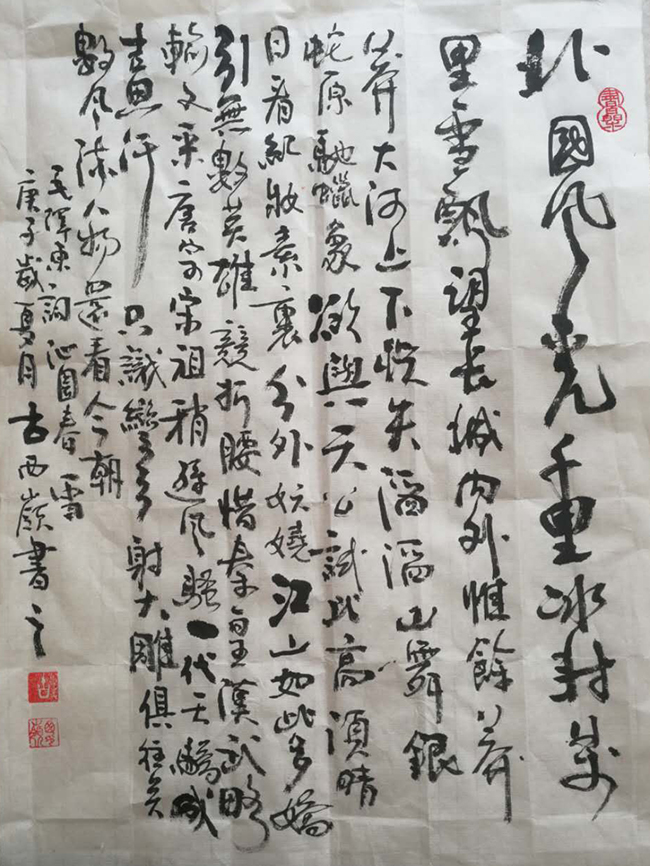 北國風光千里冰封萬
里雪飄望長城內外惟餘莽
莽大河上下頓失滔滔山舞銀
蛇原馳蠟象欲與天公試比高須晴
日看紅妝素裹分外妖嬈江山如此多嬌
引無數英雄競折腰惜秦皇漢武略
輸文采唐宗宋祖稍遜風騷一代天驕成
吉思汗只識彎弓射大雕俱往矣
數風流人物還看今朝
毛澤東詞沁園春雪
庚子歲夏月古西嶺書之